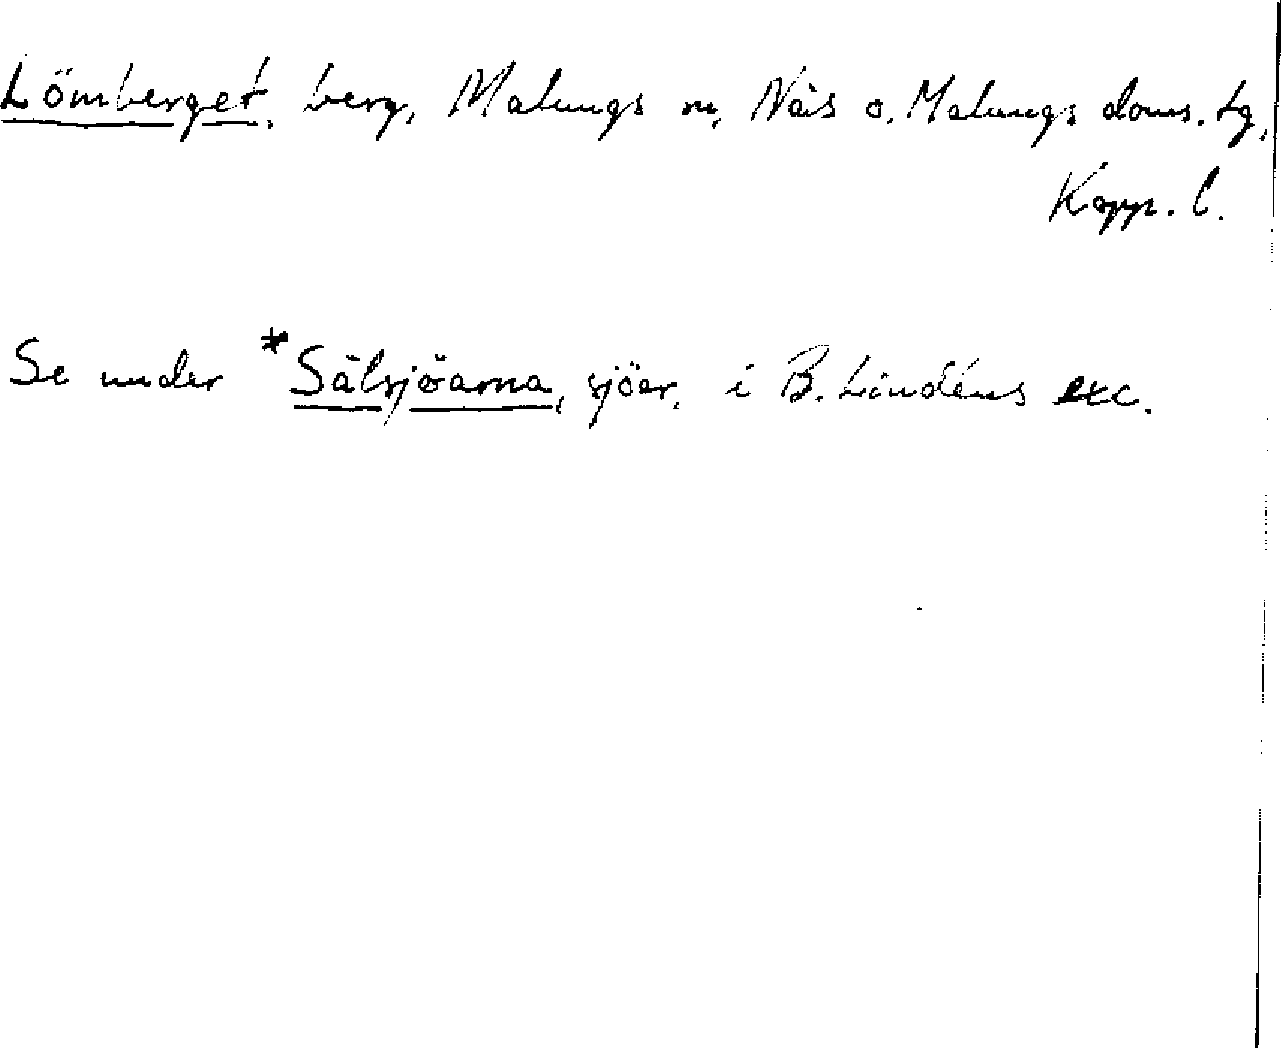 Lömberget, berg, Malungs sn, Näs o. Malungs doms. tg,
Kopp. l.
Se under *Sälsjöarna, sjöar, i B. Lindéns exc.